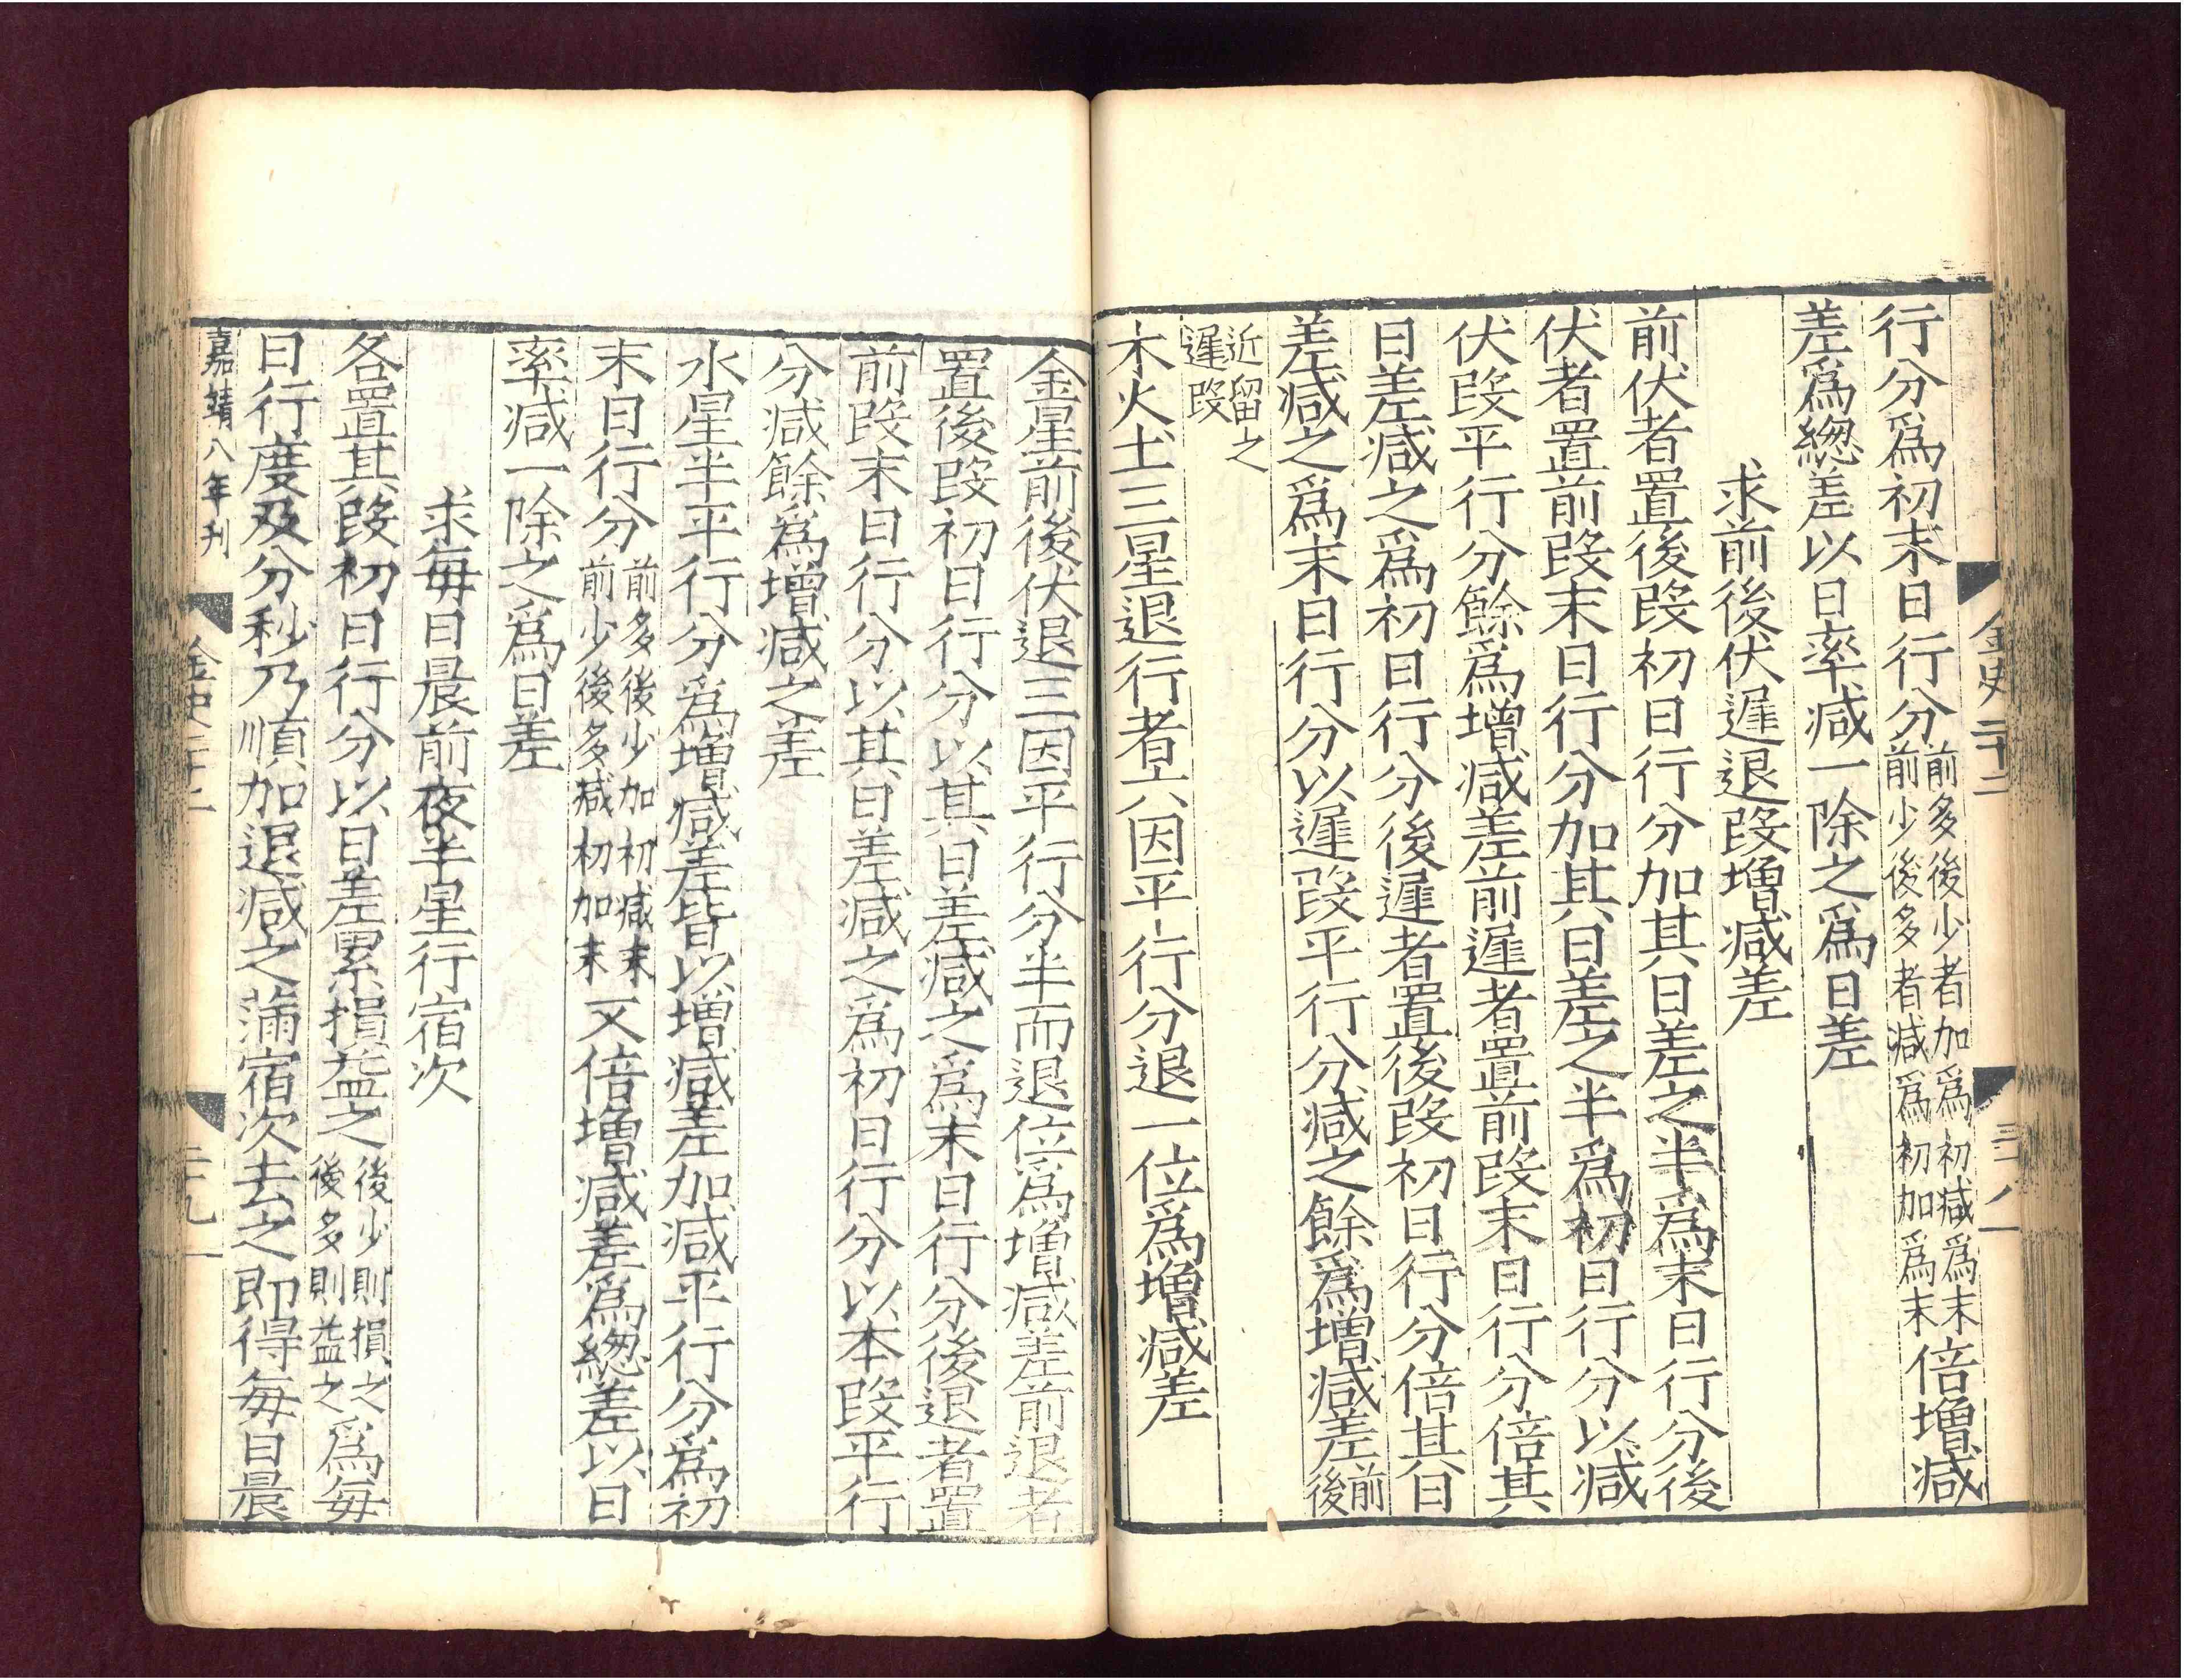 行分爲初末日行分前多後少者加爲初減爲末前少後多者減爲初加爲末倍增減
差爲緫差以日率減一除之爲日差
求前後伏遲退段增減差
前伏者置後段初日行分加其日差之半爲末日行分後
伏者置前段末日行分加其日差之半爲初日行分以減
伏段平行分餘爲增減差前遲者置前段末日行分倍其
日差減之爲初日行分後遲者置後段初日行分倍其日
差減之爲末日行分以遲段平行分減之餘爲增減差前後
近留之遲段
木火土三星退行者六因平行分退一位爲增減差
金史二十二
金星前後伏退三因平行分半而退位爲增減差前退者
置後段初日行分以其日差減之爲末日行分後退者置
前段末日行分以其日差減之爲初日行分以本段平行
分減餘爲增減之差
水星半平行分爲增減差皆以增減差加減平行分爲初
末日行分前多後少加初減末前少後多減初加末又倍增減差爲緫差以日
率減一除之爲日差
求每日晨前夜半星行宿次
各置其段初日行分以日差累損益之後少則損之後多則益之爲每
日行度及分秒乃順加退減之滿宿次去之即得每日晨
嘉靖八年刊
金史二十二
二十九